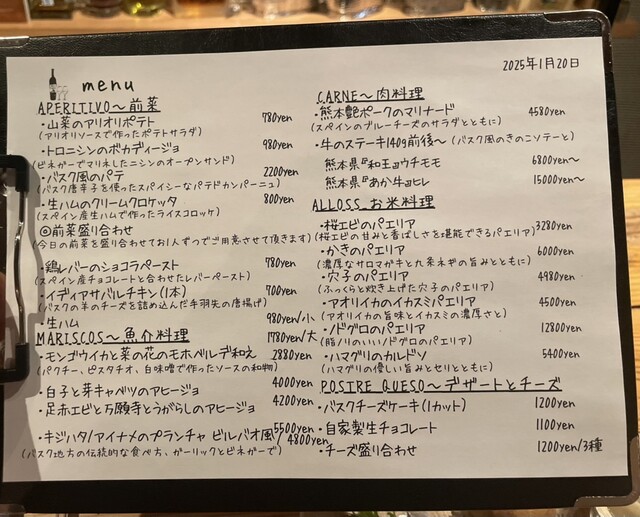 menu
2025年1月20日
APERITIVO～前菜
・山菜のアリオリポテト 780yen
(アリオリソースで作ったポテトサラダ)
・トロニシンのボカディージョ 980yen
(ビネガーでマリネしたニシンのオープンサンド)
・バスク風のパテ 2200yen
(バスク唐辛子を使ったスパイシーなパテドカンパーニュ)
・生ハムのクリームクロケッタ 800yen
(スペイン産生ハムで作ったライスコロッケ)
◎前菜盛り合わせ
(今日の前菜を盛り合わせてお1人ずつでご用意させて頂きます)
・鶏レバーのショコラペースト 780yen
(スペイン産チョコレートと合わせたレバーペースト)
・イディアサバルチキン(1本) 700yen
(バスクの羊のチーズを詰め込んだ手羽先の唐揚げ)
・生ハム 980yen/小
1780yen/大
MARISCOS～魚介料理
・モンゴウイカと菜の花のモホベルデ和え 2880yen
(パクチー、ピスタチオ、白味噌で作ったソースの和物)
・白子と芽キャベツのアヒージョ 4000yen
・足赤エビと万願寺とうがらしのアヒージョ 4200yen
・キジハタ/アイナメのプランチャ ビルバオ風 5500yen/4800yen
(バスク地方の伝統的な食べ方、ガーリックとビネガーで)
CARNE～肉料理
・熊本艶ポークのマリナード 4580yen
(スペインのブルーチーズのサラダとともに)
・牛のステーキ140g前後～(バスク風のきのこソテーと)
熊本県『和王』ウチモモ 6800yen～
熊本県『あか牛』ヒレ 15000yen～
ALLOSS～お米料理
・桜エビのパエリア 3280yen
(桜エビの甘みと香ばしさを堪能できるパエリア)
・かきのパエリア 6000yen
(濃厚なサロマガキと九条ネギの旨みとともに)
・穴子のパエリア 4980yen
(ふっくらと炊き上げた穴子のパエリア)
・アオリイカのイカスミパエリア 4500yen
(アオリイカの旨味とイカスミの濃厚さと)
・ノドグロのパエリア 12800yen
(脂ノリのいいノドグロのパエリア)
・ハマグリのカルドソ 5400yen
(ハマグリの優しい旨みとセリとともに)
POSTRE QUESO～デザートとチーズ
・バスクチーズケーキ(1カット) 1200yen
・自家製生チョコレート 1100yen
・チーズ盛り合わせ 1200yen/3種